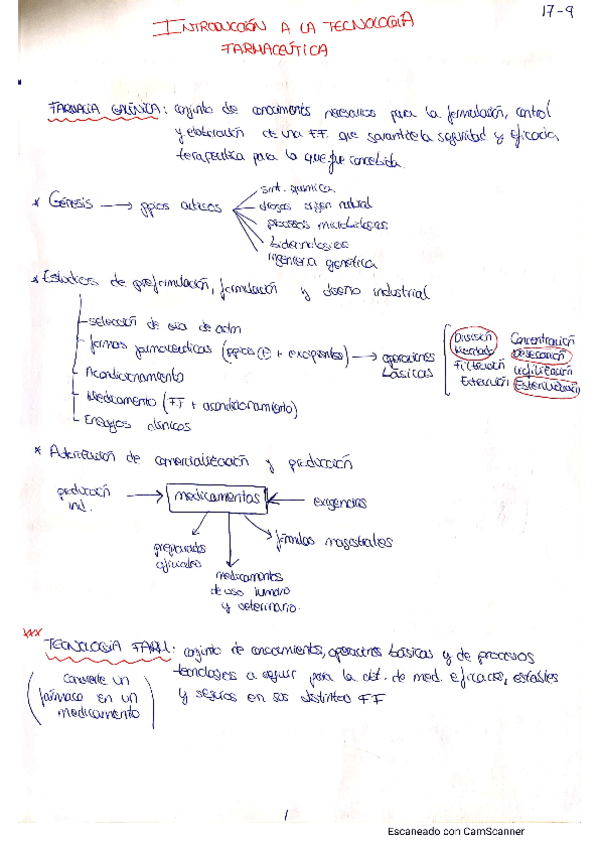 17-9
INTRODUCCIÓN A LA TECNOLOGÍA
FARMACEÚTICA
FARMACIA GALÉNICA: conjunto de conocimientos necesarios para la formulación, control
y elaboración de una F.F. que garantice la seguridad y eficacia
terapeútica para la que fue concebida.
* Génesis → ppios activos
sínt. química
drogas origen natural
procesos microbiológicos
biotecnologías
ingeniería genética
* Estudios de preformulación, formulación y diseño industrial
- selección de vía de adm
- formas farmaceúticas (ppios + excipientes) → operaciones básicas
División Concentración
Mezclado Desecación
Filtración Liofilización
Extracción Esterilización
- Acondicionamiento
- Medicamento (FF + acondicionamiento)
- Ensayos clínicos
* Autorización de comercialización y producción
producción ind. → medicamentos ← exigencias
preparados oficinales
medicamentos de uso humano y veterinario.
fórmulas magistrales
xxx
TECNOLOGÍA FARM.: conjunto de conocimientos, operaciones básicas y de procesos
tecnológicos a seguir para la obt. de med. eficaces, estables
y seguros en sus distintas FF
(Convierte un
fármaco en un
medicamento)
1
Escaneado con CamScanner